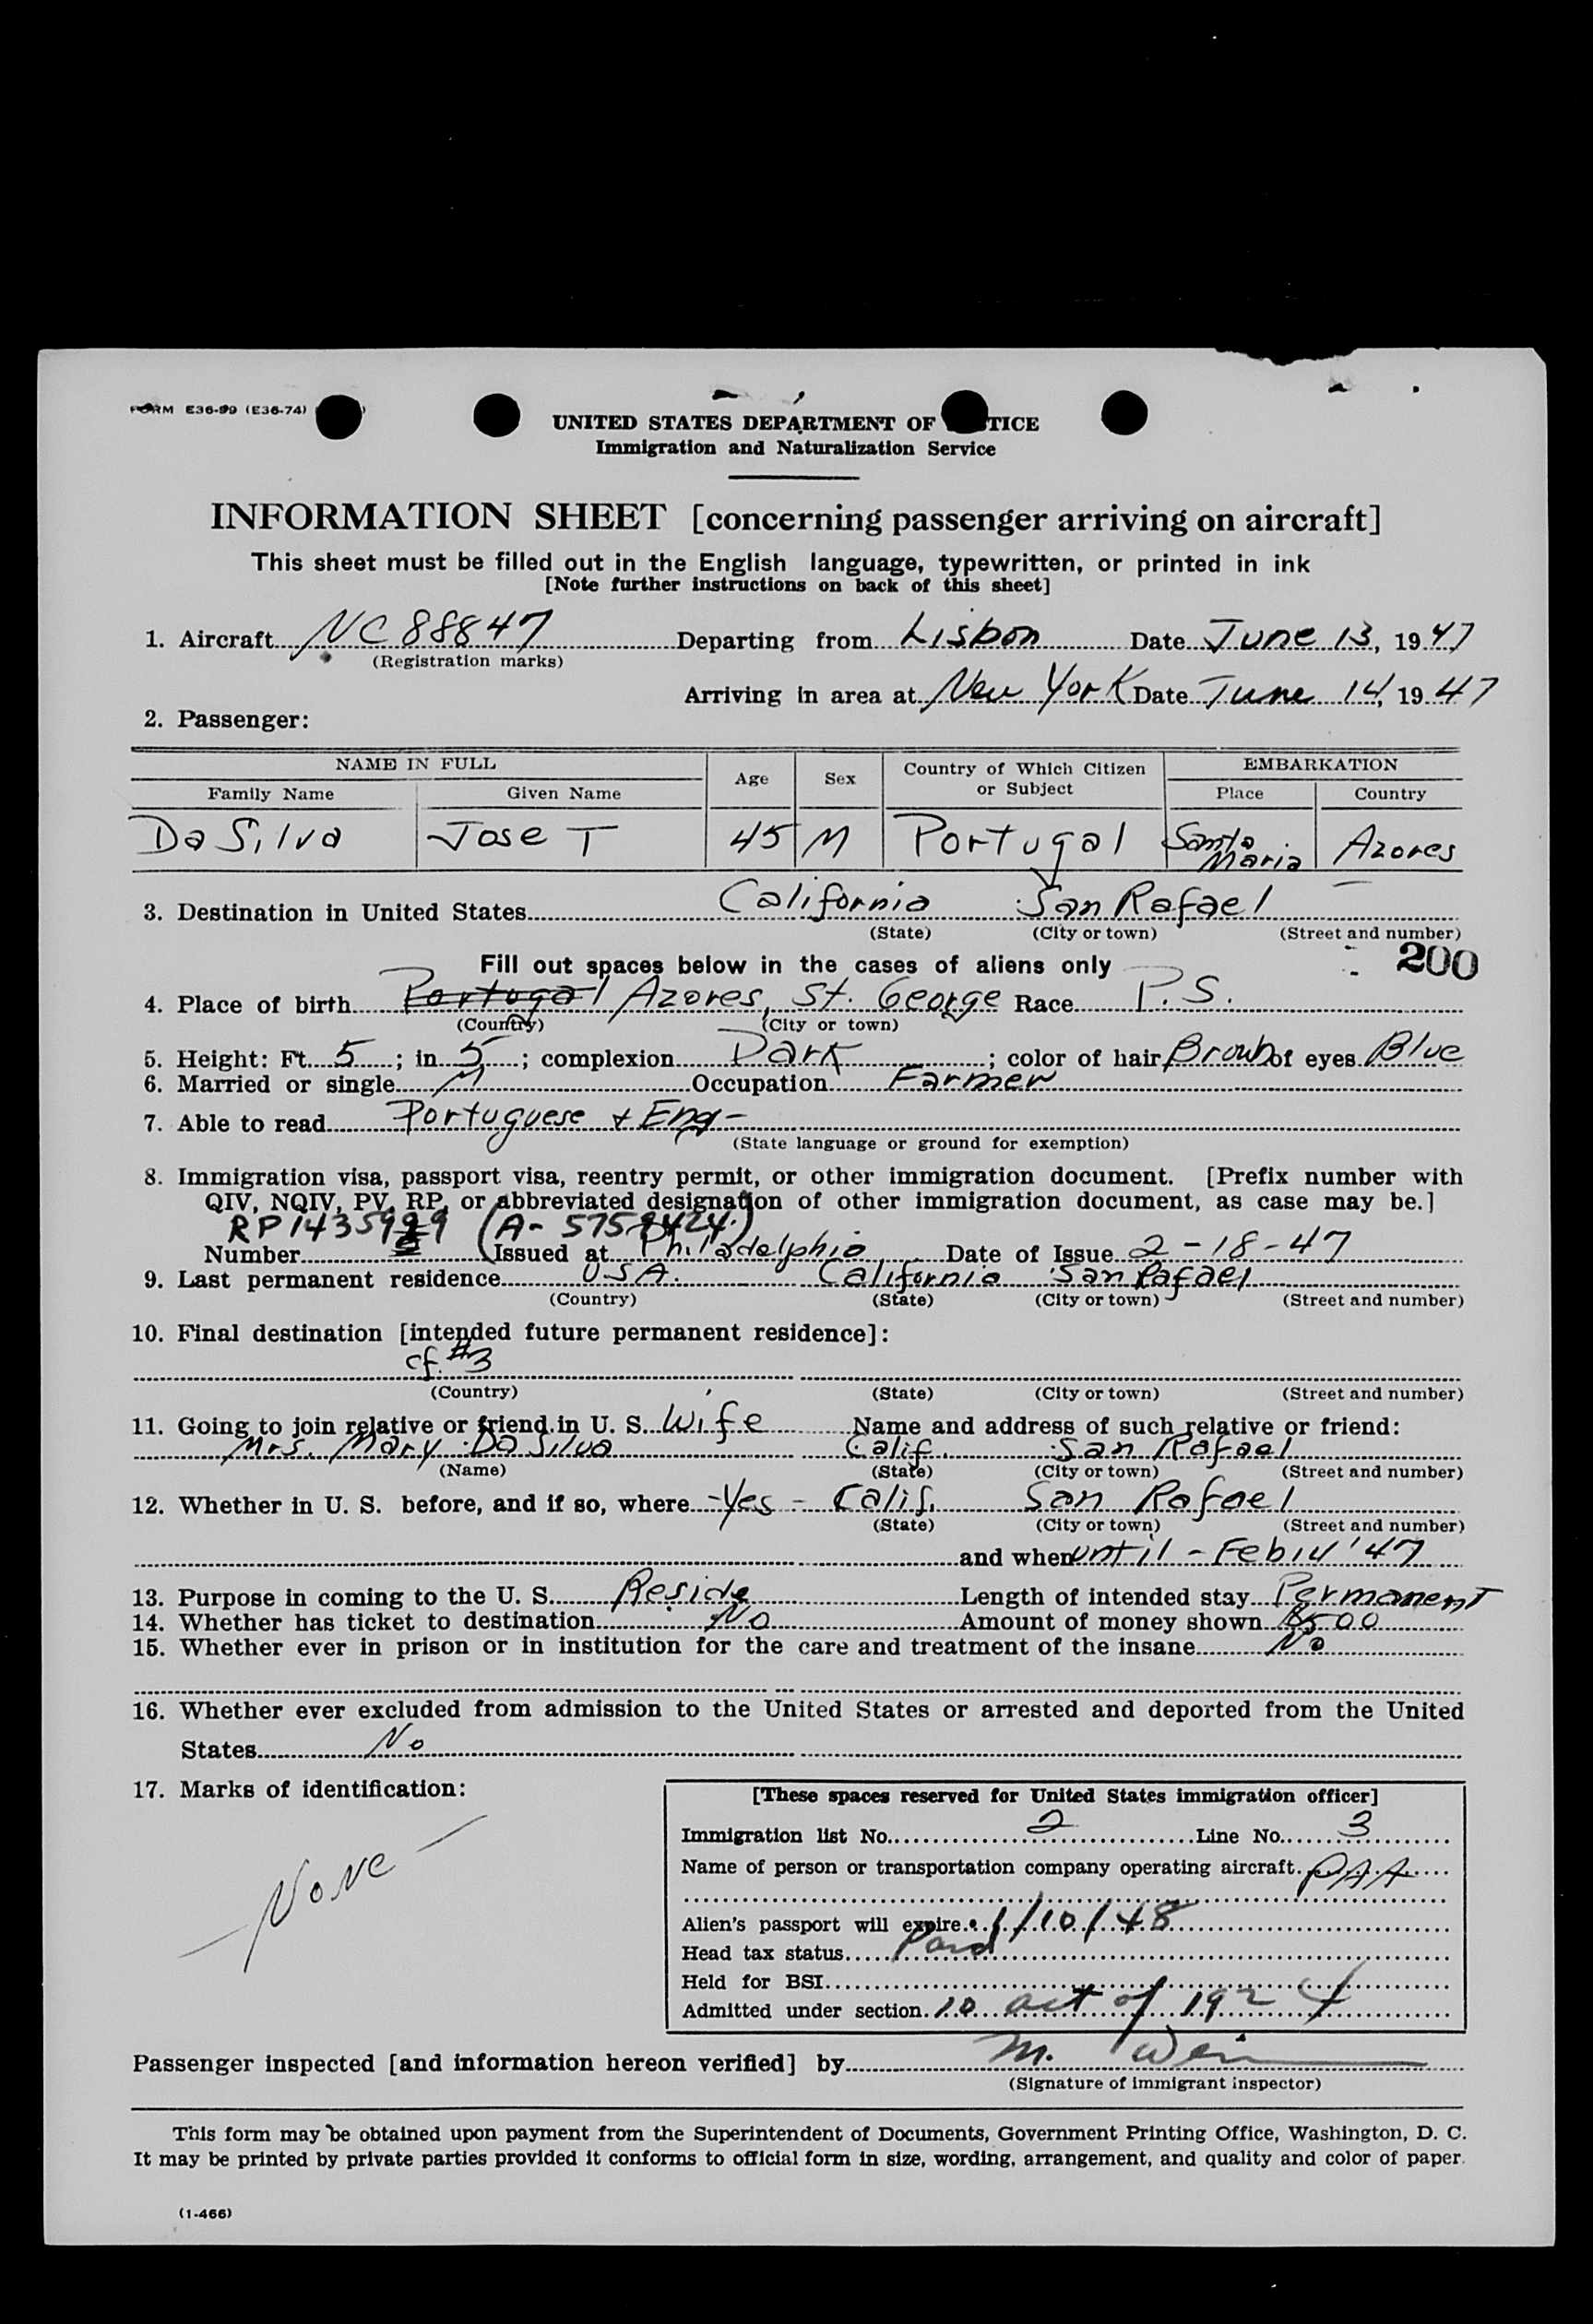 FORM E36-99 (E36-74)
UNITED STATES DEPARTMENT OF TICE
Immigration and Naturalization Service
INFORMATION SHEET [concerning passenger arriving on aircraft]
This sheet must be filled out in the English language, typewritten, or printed in ink
[Note further instructions on back of this sheet]
1. Aircraft NC 88847 Departing from Lisbon Date June 13, 1947
(Registration marks)
Arriving in area at New York Date June 14, 1947
2. Passenger:
NAME IN FULL Age Sex Country of Which Citizen or Subject EMBARKATION
Family Name Given Name Place Country
Da Silva Jose T 45 M Portugal Santa Maria Azores
3. Destination in United States California San Rafael
(State) (City or town) (Street and number)
200
Fill out spaces below in the cases of aliens only
4. Place of birth Portugal Azores, St. George Race P.S.
(Country) (City or town)
5. Height: Ft. 5; in. 5; complexion Dark; color of hair Brown of eyes Blue
6. Married or single M Occupation Farmer
7. Able to read Portuguese + Eng-
(State language or ground for exemption)
8. Immigration visa, passport visa, reentry permit, or other immigration document. [Prefix number with
QIV, NQIV, PV, RP, or abbreviated designation of other immigration document, as case may be.]
(A-
Number Issued at Philadelphia Date of Issue 2-18-47
9. Last permanent residence USA. California San Rafael
(Country) (State) (City or town) (Street and number)
10. Final destination [intended future permanent residence]:
cf. #3
(Country) (State) (City or town) (Street and number)
11. Going to join relative or friend in U. S. Wife Name and address of such relative or friend:
Mrs. Mary Da Silva Calif. San Rafael
(Name) (State) (City or town) (Street and number)
12. Whether in U. S. before, and if so, where -Yes - Calif. San Rafael
(State) (City or town) (Street and number)
and when until - Feb 14 '47
13. Purpose in coming to the U. S. Reside Length of intended stay Permanent
14. Whether has ticket to destination No Amount of money shown $500
15. Whether ever in prison or in institution for the care and treatment of the insane No
16. Whether ever excluded from admission to the United States or arrested and deported from the United
States No
17. Marks of identification:
- None -
[These spaces reserved for United States immigration officer]
Immigration list No. 2 Line No. 3
Name of person or transportation company operating aircraft. PAA
Alien's passport will expire 1/10/48
Head tax status
Held for BSI
Admitted under section 10 act of 1924
Passenger inspected [and information hereon verified] by M. Wein
(Signature of immigrant inspector)
This form may be obtained upon payment from the Superintendent of Documents, Government Printing Office, Washington, D. C.
It may be printed by private parties provided it conforms to official form in size, wording, arrangement, and quality and color of paper.
(1-466)